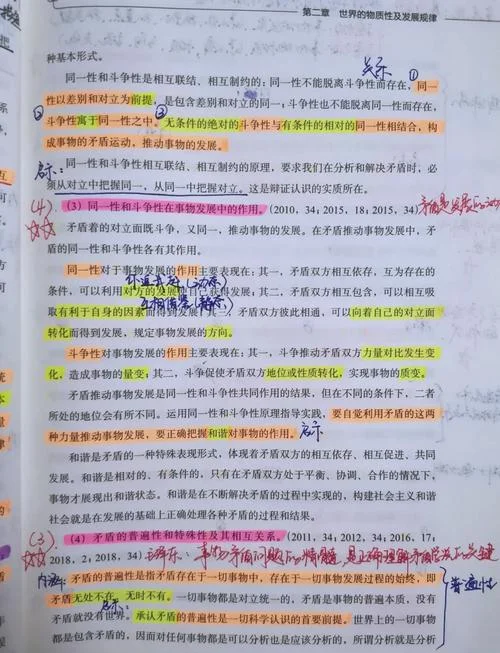 第二章 世界的物质性及发展规律
种基本形式。
关系
同一性和斗争性是相互联结、相互制约的：同一性不能脱离斗争性而存在，同一
①
性以差别和对立为前提，是包含差别和对立的同一；斗争性也不能脱离同一性而存在，
②
斗争性寓于同一性之中。无条件的绝对的斗争性与有条件的相对的同一性相结合，构
成事物的矛盾运动，推动事物的发展。
启示：
同一性和斗争性相互联结、相互制约的原理，要求我们在分析和解决矛盾时，必
须从对立中把握同一，从同一中把握对立。这是辩证认识的实质所在。
(4)
（3）同一性和斗争性在事物发展中的作用。（2010，34；2015，18；2015，34）
矛盾是发展的动力
矛盾着的对立面既斗争，又同一，推动事物的发展。在矛盾推动事物发展中，矛
盾的同一性和斗争性各有其作用。
同一性对于事物发展的作用主要表现在：其一，矛盾双方相互依存，互为存在的
条件，可以利用对方的发展使自己获得发展；其二，矛盾双方相互包含，可以相互吸
取有利于自身的因素而得到发展；其三，矛盾双方彼此相通，可以向着自己的对立面
转化而得到发展，规定事物发展的方向。
斗争性对事物发展的作用主要表现在：其一，斗争推动矛盾双方力量对比发生变
化，造成事物的量变；其二，斗争促使矛盾双方地位或性质转化，实现事物的质变。
矛盾推动事物发展是同一性和斗争性共同作用的结果，但在不同的条件下，二者
所处的地位会有所不同。运用同一性和斗争性原理指导实践，要自觉利用矛盾的这两
种力量推动事物发展，要正确把握和谐对事物的作用。
启示
和谐是矛盾的一种特殊表现形式，体现着矛盾双方的相互依存、相互促进、共同
发展。和谐是相对的、有条件的，只有在矛盾双方处于平衡、协调、合作的情况下，
事物才展现出和谐状态。和谐是在不断解决矛盾的过程中实现的，构建社会主义和谐
社会就是在发展的基础上正确处理各种矛盾的过程和结果。
(3)
（4）矛盾的普遍性和特殊性及其相互关系。（2011，34；2012，34；2016，17；
2018，2；2018，34）
毛泽东：事物矛盾问题的精髓，是正确理解矛盾学说的关键
内涵：
矛盾的普遍性是指矛盾存在于一切事物中，存在于一切事物发展过程的始终，即
矛盾无处不在，无时不有。一切事物都是对立统一的，矛盾是事物的普遍本质，没有
普遍性
启示：
矛盾就没有世界。承认矛盾的普遍性是一切科学认识的首要前提。世界上的一切事物
都是包含矛盾的，因而对任何事物都是可以分析也是应该分析的，所谓分析就是分析